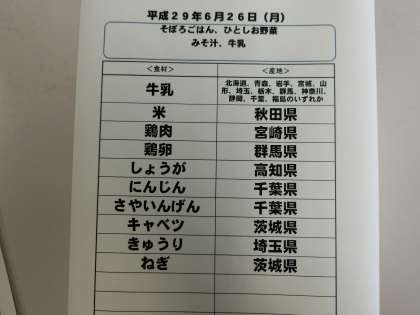 平成29年6月26日(月)
そぼろごはん、ひとしお野菜
みそ汁、牛乳
<食材> <産地>
牛乳 北海道、青森、岩手、宮城、山
形、埼玉、栃木、群馬、神奈川、
静岡、千葉、福島のいずれか
米 秋田県
鶏肉 宮崎県
鶏卵 群馬県
しょうが 高知県
にんじん 千葉県
さやいんげん 千葉県
キャベツ 茨城県
きゅうり 埼玉県
ねぎ 茨城県